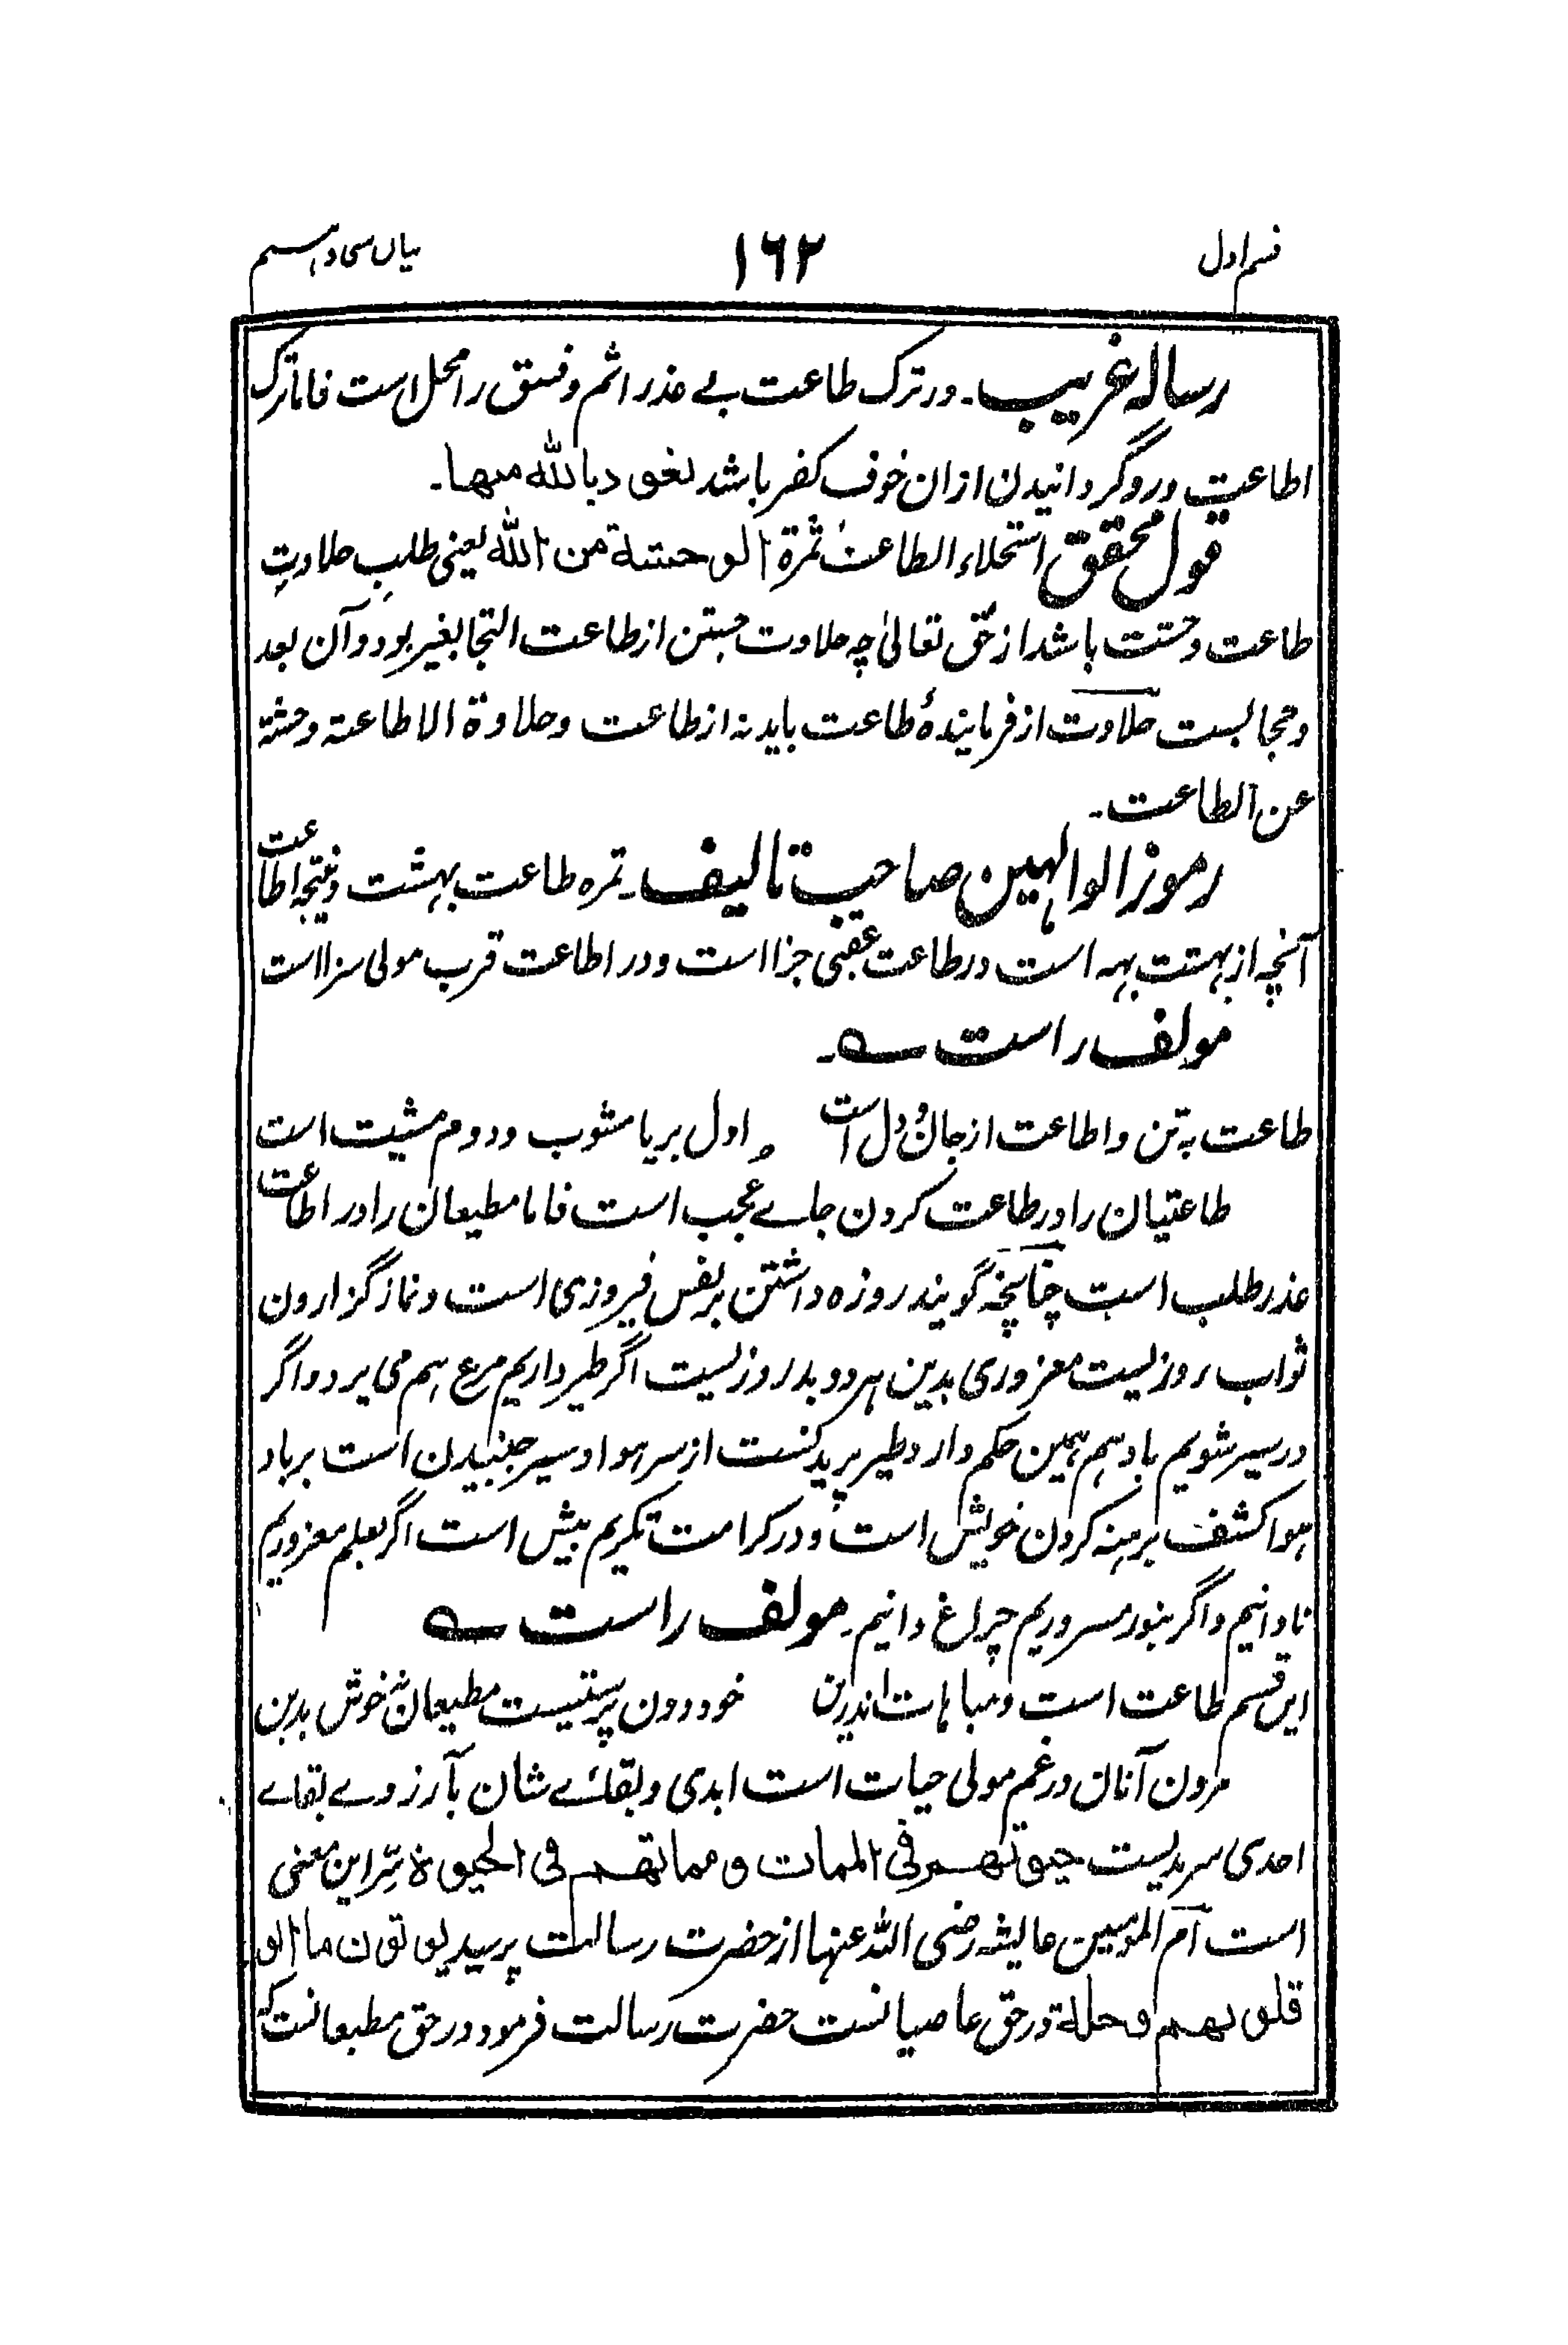 قسم اول
۱۶۲
بیاں سی و نہم
رسالہ غریب۔ در ترک طاعت بے عذر اثم و فسق را محل است فاما ترک
اطاعت و رو گردانیدن ازان خوف کفر باشد نعوذ بالله منها۔
قول محقق استحلاء الطاعت ثمرة الوحشة من الله یعنی طلبِ حلاوتِ
طاعت وحشت باشد از حق تعالیٰ چہ حلاوت جستن از طاعت التجا بغیر بود و آن بعد
و مجالست حلاوت از فرمایندۂ طاعت باید نہ از طاعت و حلاوة الاطاعتہ وحشة
عن الطاعت۔
رموز الوالہین صاحب تالیف۔ ثمرہ طاعت بہشت و نتیجہ اطاعت
آنچہ از بہشت بہہ است در طاعت عقبیٰ جزا است و در اطاعت قرب مولی سزا است
مولف راست ؎۔
طاعت بہ تن و اطاعت از جان و دل است ، اول بریا مشوب و دوم مثیت است
طاعتیان را در طاعت کردن جاے عُجب است فاما مطیعان را در اطاعت
عذر طلب است چنانچہ گویند روزہ داشتن بر نفس فیروزی است و نماز گزاردن
ثواب روزیست مغروری بدین ہر دو بد روزیست اگر طیر داریم مرغ ہم می پرد و اگر
در سیر شویم باد ہم ہمین حکم دارد طیر پریدنست از سر ہوا و سیر جنبیدن است بر باد
ہوا کشف برہنہ کردن خویش است و در کرامت تکریم بیش است اگر بعلم مغروریم
نادانیم و اگر بنور مسروریم چراغ دانیم۔ مولف راست ؎
این قسم طاعت است و مباہات اندرین خود دون پرستیست مطیعان نہ خوش بدین
مردن آنان در غم مولی حیات است ابدی و بقائے شان بآرزوے بقاے
احدی سرمدیست حیوتهم فی الممات و مماتهم فی الحیوة سِرّ این معنی
است ام المومنین عایشہ رضی اللہ عنہا از حضرت رسالت پرسید یوتون ما اتو
قلوبهم وجلة در حق عاصیانست حضرت رسالت فرمود در حق مطیعانست کہ